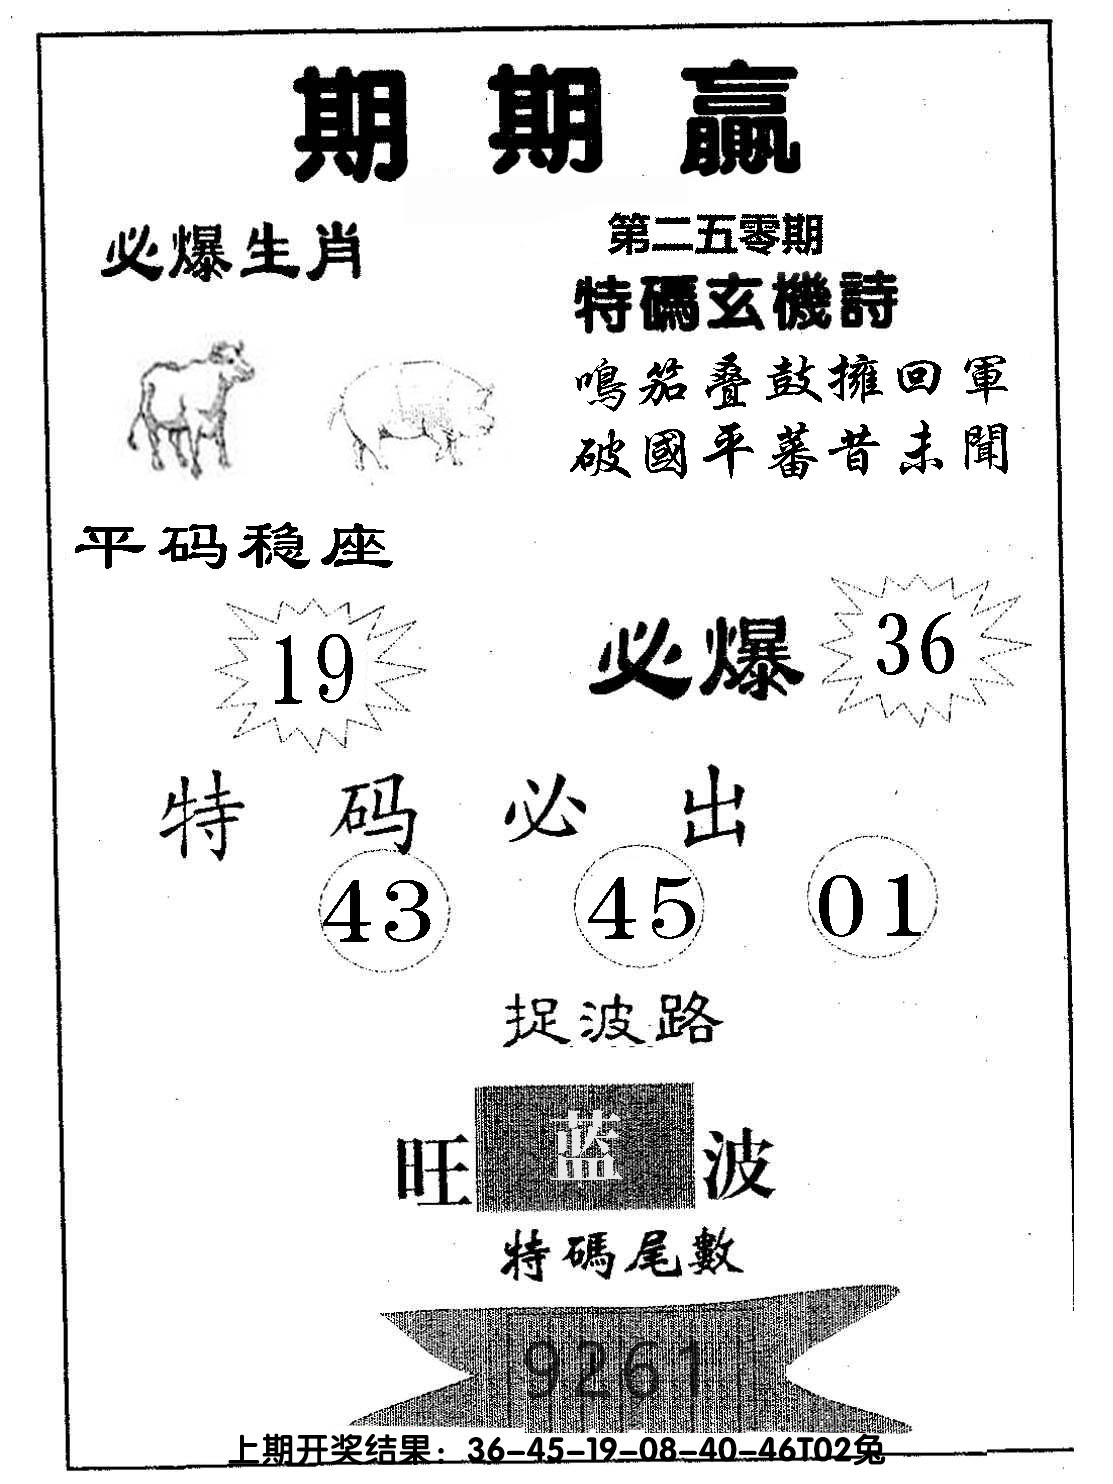 期期贏
必爆生肖
第二五零期
特碼玄機詩
鳴笳叠鼓擁回軍
破國平蕃昔未聞
平码稳座
19
必爆 36
特码必出
43 45 01
捉波路
旺 蓝 波
特碼尾數
9261
上期开奖结果：36-45-19-08-40-46T02兔